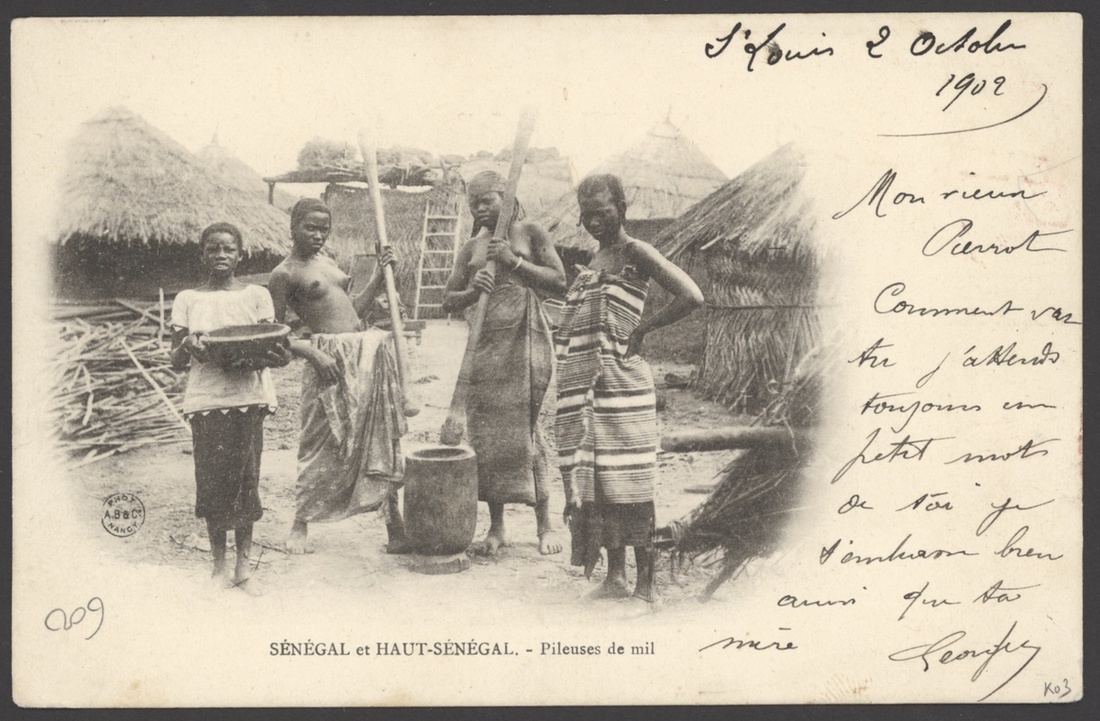 St Louis 2 Octobre
1902
Mon vieux
Pierrot
Comment vas
tu j'attends
toujours un
petit mots
de toi je
t'embrasse bien
ainsi que ta
mère
Georges
PHOT
A.B & Cie
NANCY
209
SÉNÉGAL et HAUT-SÉNÉGAL. - Pileuses de mil
K03